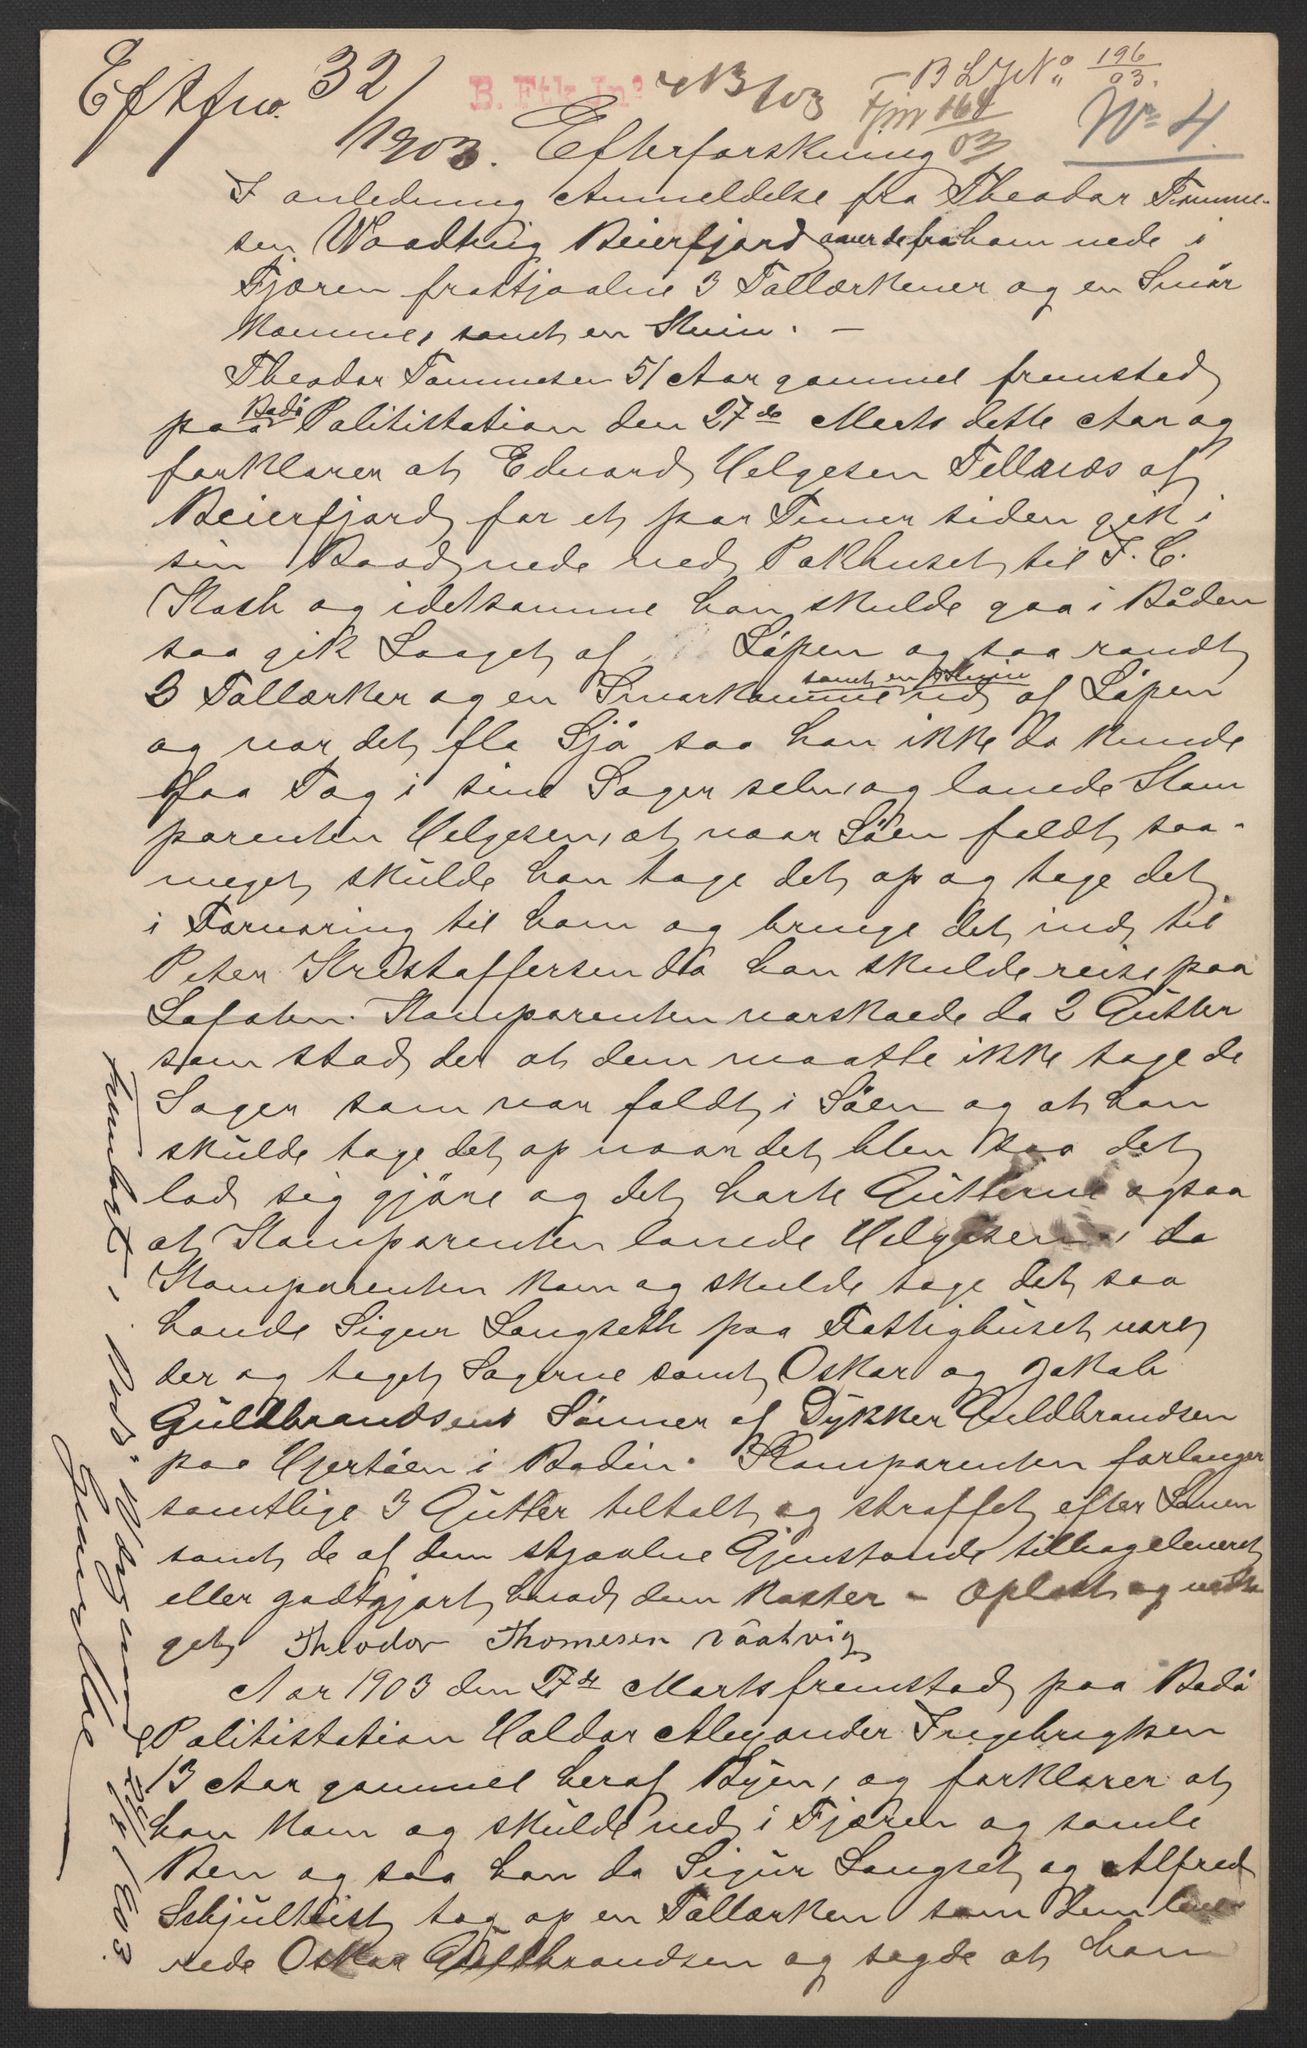 Eftfno. 32/1903.
B. Ftk Jn.o 413/03
B L J No 196/03.
Fjm 164/03
No 4.
Efterforskning
I anledning Anmeldelse fra Theodor Tommesen
Waadtvig Beierfjord over de fra ham nede i
Fjæren frastjaalne 3 Tallærkener og en Smør
Kamme, samt en Skuin. —
Theodor Tommesen 51 Aar gammel fremstod
paa Bodø Politistation den 27de Marts dette Aar og
forklarer at Edvard Helgesen Tellnæs af
Beierfjord for et par Timer siden gik i
sin Baad nede ved Pakhuset til F. C.
Koch og idetsamme han skulde gaa i Båden
saa gik Laaget af Løpen og saa randt
3 Tallærker og en Smørkamme samt en Skuin ud af Løpen
og var det flo Sjø saa han ikke da kunde
faa Tag i sine Sager selv, og lovede Kom
parenten Helgesen, at naar Søen faldt saa-
meget skulde han tage det op og tage det
i Forvaring til ham og bringe det ind til
Peter Kristoffersen da han skulde reise paa
Lofoten. Komparenten varskoede da 2 Gutter
som stod der at dem maatte ikke tage de
Sager som var faldt i Søen og at han
skulde tage det op naar det blev saa det
lod sig gjøre og det hørte Gutterne ogsaa
at Komparenten lovede Helgesen, da
Komparenten kom og skulde tage det saa
havde Sigur Langseth paa Fattighuset vært
der og taget Sagerne samt Oskar og Jakob
Guldbrandsens Sønner af Dykker Guldbrandsen
paa Hjertøen i Bodin. Komparenten forlanger
samtlige 3 Gutter tiltalt og straffet efter Loven
samt de af dem stjaalne Gjenstande tilbageleveret
eller godtgjort hvad dem koster – Oplæst og vedta
get Theodor Thomesen våatvig
Aar 1903 den 27de Marts fremstod paa Bodø
Politistation Haldor Alexander Ingebrigtsen
13 Aar gammel heraf Byen, og forklarer at
han kom og skulde ned i Fjæren og samle
Ben og saa han da Sigur Langset og Alfred
Schjultist tog op en Tallærken som dem leve
rede Oskar Guldbrandsen og sagde at han
Fremlagt i Bodø 1903.